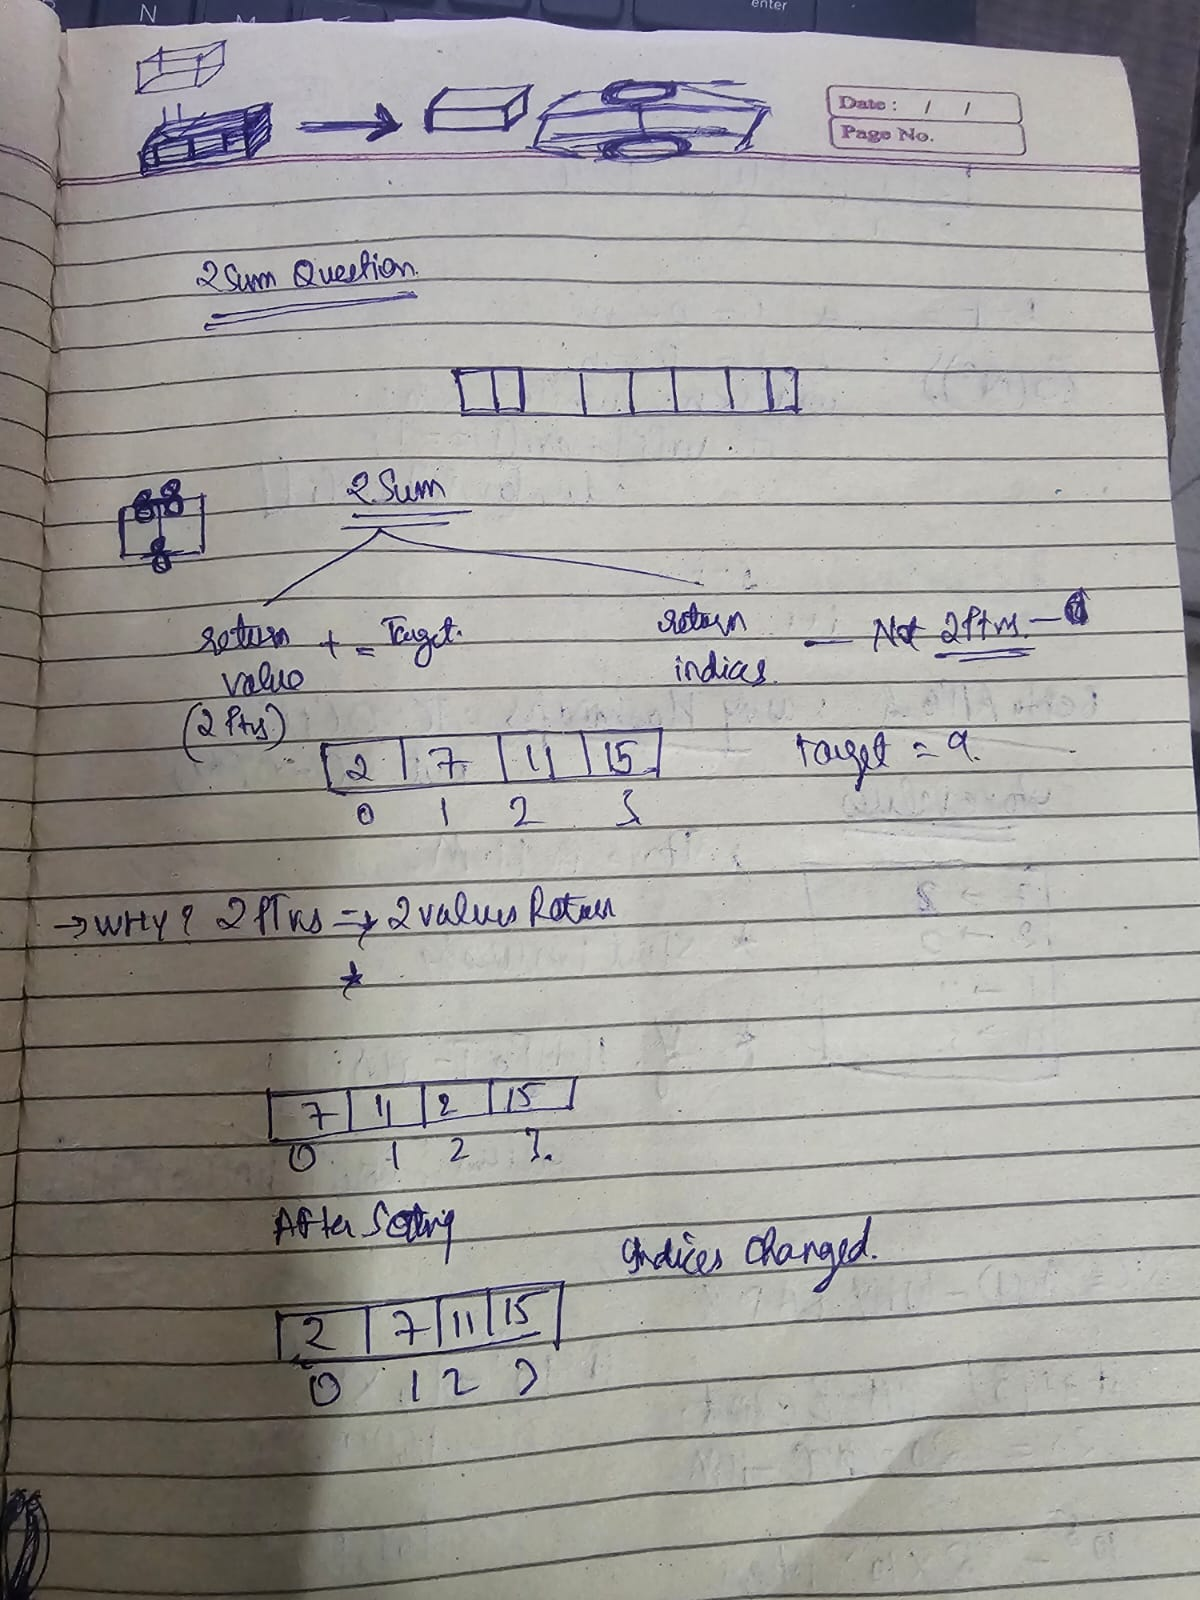 N
enter
Date : / /
Page No.
2 Sum Question.
2 Sum
return value (2 Ptrs)
+ = Target.
return indices.
— Not 2 Ptrs. —
2 7 11 15
Target = 9.
0 1 2 3
→ WHY? 2 PTRs → 2 values Return
7 11 2 15
0 1 2 3.
After Sorting
Indices Changed.
2 7 11 15
0 1 2 3